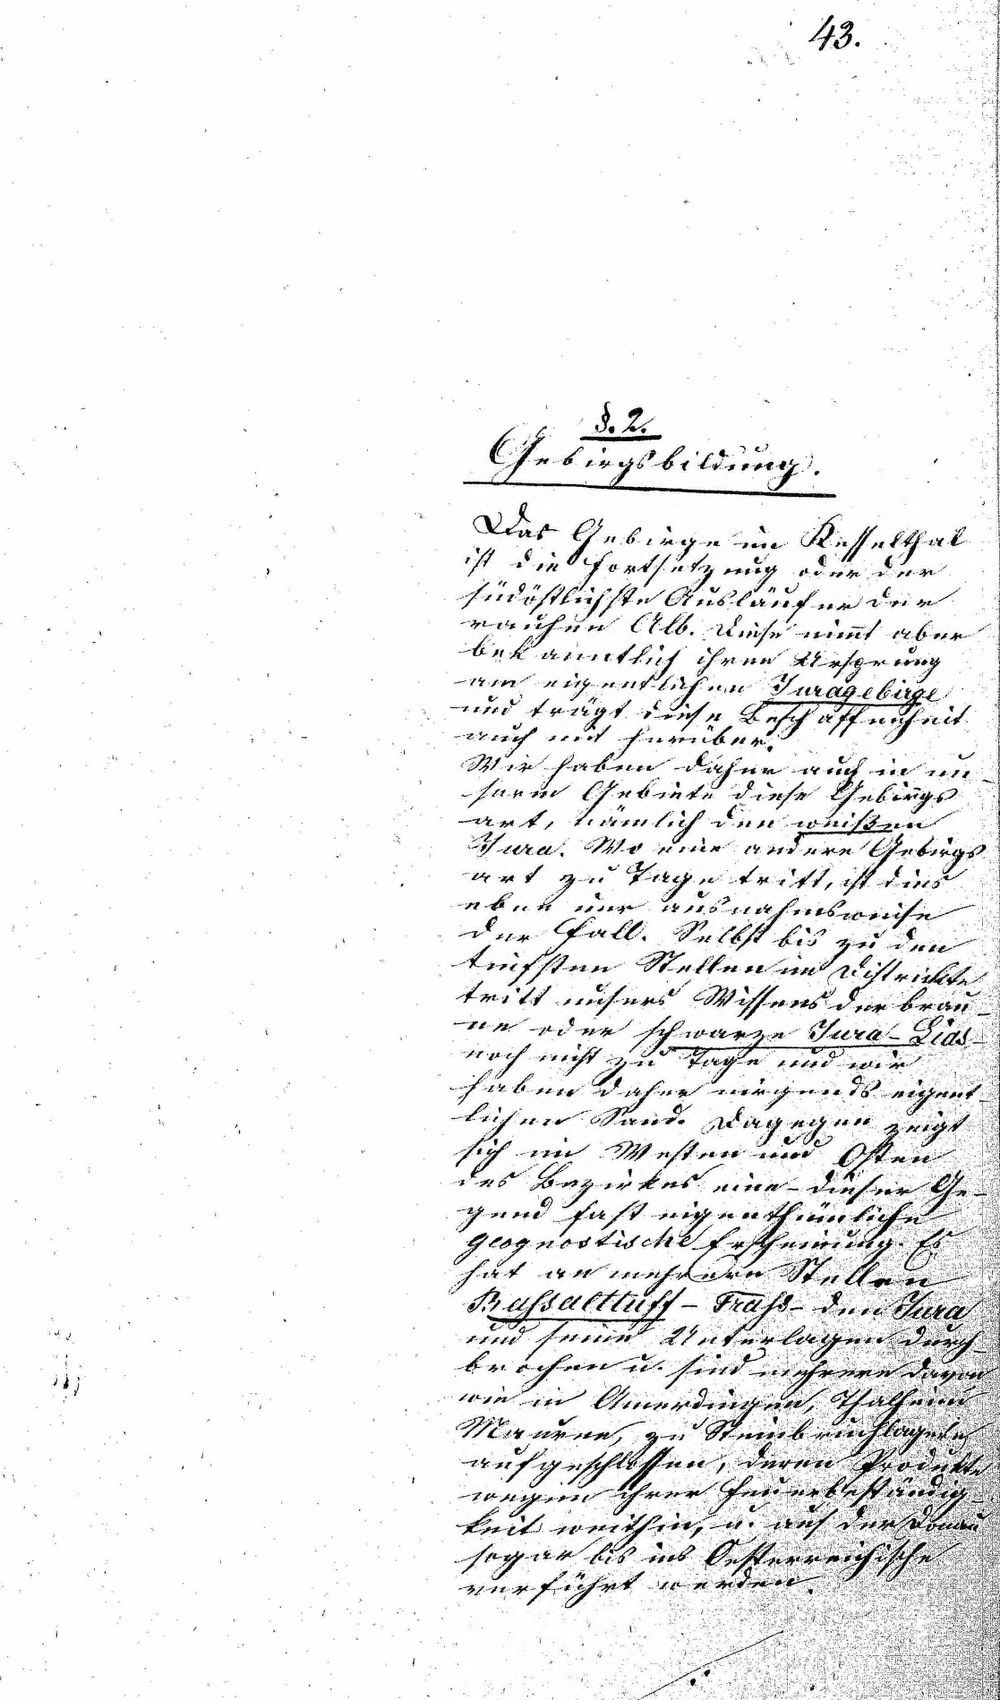 43.
§. 2.
Gebirgsbildung.
Das Gebirge im Kesselthal
ist die Fortsetzung oder der
südöstlichste Ausläufer der
rauhen Alb. Diese nimt aber
bekanntlich ihren Ursprung
am eigentlichen Juragebirge
und trägt diese Beschaffenheit
auch mit herüber.
Wir haben daher auch in un-
serm Gebiete diese Gebirgs
art, nämlich den weißen
Jura. Wo eine andere Gebirgs
art zu Tage tritt, ist dies
eben nur ausnahmsweise
der Fall. Selbst bis zu den
tiefsten Stellen im Districkte
tritt unsers Wissens der brau-
ne oder schwarze Jura - Lias -
noch nicht zu Tage und wir
haben daher nirgends eigent-
lichen Sand. Dagegen zeigt
sich im Westen und Osten
des Bezirkes eine - dieser Ge-
gend fast eigenthümliche
geognostische Erscheinung. Es
hat an mehrern Stellen
Bassalttuff - Trass - den Jura
und seine Unterlagen durch-
brochen u. sind mehrere davon
wie in Amerdingen, Thalheim
Mauren, zu Steinbruchlagern
aufgeschlossen, deren Produkte
wegen ihrer Feuerbeständig-
keit weithin, u. auf der Donau
sogar bis ins Oesterreichische
verführt werden.